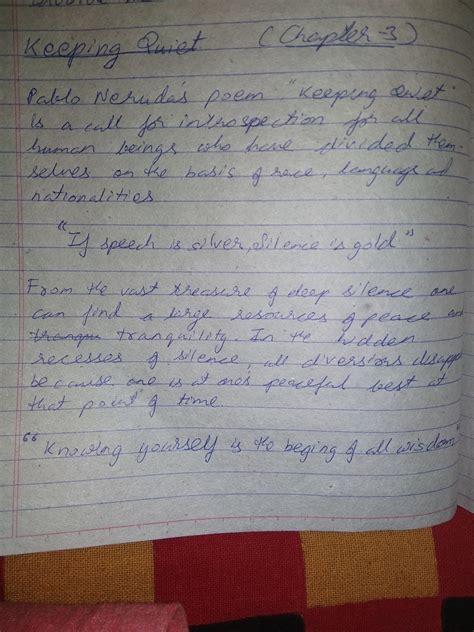 Keeping Quiet (Chapter-3)
Pablo Neruda's poem "Keeping Quiet"
is a call for introspection for all
human beings who have divided them-
selves on the basis of race, language ad
nationalities
"If speech is silver, silence is gold"
From the vast treasure of deep silence one
can find a large resources of peace and
tranqu tranquility. In the hidden
recesses of silence, all diversions disapp
because one is at one's peaceful best at
that point of time.
"Knowing yourself is the beging of all wisdom"